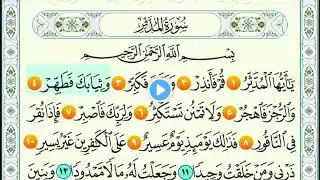 سُورَةُ المُدَّثِّرِ
بِسْمِ اللَّهِ الرَّحْمَٰنِ الرَّحِيمِ
يَا أَيُّهَا الْمُدَّثِّرُ ١ قُمْ فَأَنذِرْ ٢ فَكَبِّرْ ٣ وَثِيَابَكَ فَطَهِّرْ ٤
وَالرُّجْزَ فَاهْجُرْ ٥ وَلَا تَمْنُن تَسْتَكْثِرُ ٦ وَلِرَبِّكَ فَاصْبِرْ ٧ فَإِذَا نُقِرَ
فِي النَّاقُورِ ٨ فَذَٰلِكَ يَوْمَئِذٍ يَوْمٌ عَسِيرٌ ٩ عَلَى الْكَافِرِينَ غَيْرُ يَسِيرٍ ١٠
ذَرْنِي وَمَنْ خَلَقْتُ وَحِيدًا ١١ وَجَعَلْتُ لَهُ مَالًا مَّمْدُودًا ١٢ وَبَنِينَ